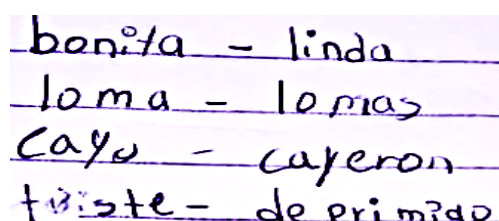 bonita - linda
loma - lomas
cayo - cayeron
triste - deprimido